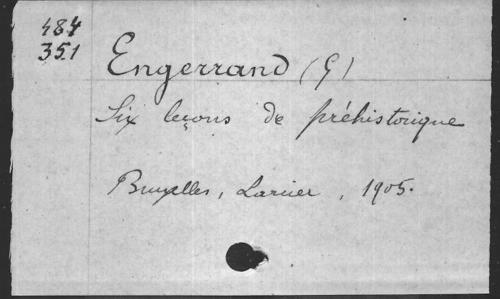 484
351
Engerrand (G)
Six leçons de préhistorique
Bruxelles, Larcier, 1905.